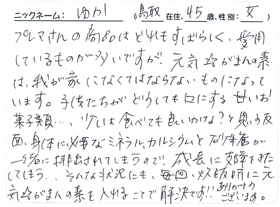 ニックネーム: ゆか (鳥取 在住、45 歳、性別: 女 )
プレマさんの商品はどれもすばらしく、愛用
しているものが多いですが、元気☆がまんの素
は、我が家になくてはならないものになって
います。子供たちがどうしても口にする甘いお
菓子類…、少しは食べても良いかな?と思う反
面、身体に必要なミネラル、カルシウムと
一気に排出されてしまうので、成長に
してしまう…。そんな状況にも、毎回、
気☆がまんの素を入れることで解決です!! ありがとう
ございます。